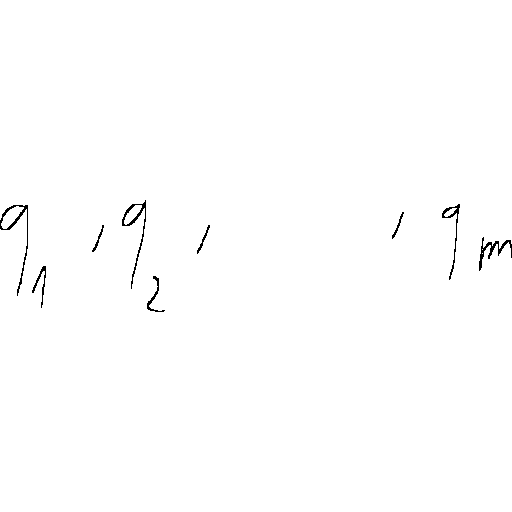 q₁, q₂, , qₘ